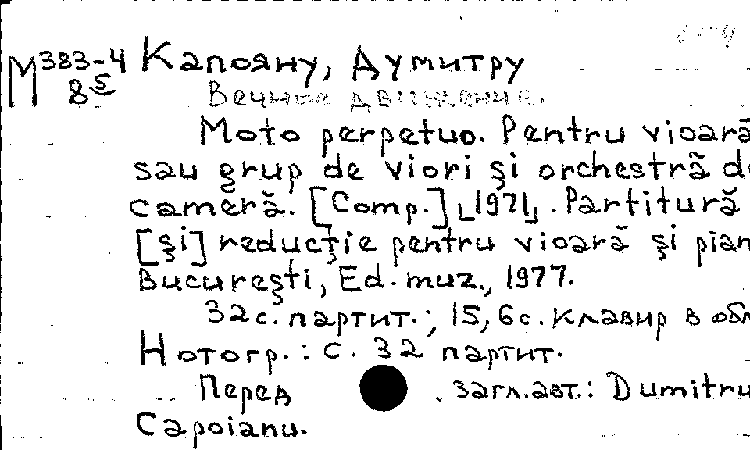 М 383-4 Капояну, Думитру
8 5 Вечное движение.
Moto perpetuo. Pentru vioară
sau grup de viori şi orchestră de
cameră. [Comp.] 1971. Partitură
[şi] reducţie pentru vioară şi pian
Bucureşti, Ed. muz., 1977.
32 с. партит.; 15, 6 с. клавир в обл
Нотогр.: с. 32 партит.
Перед загл. авт.: Dumitru
Capoianu.